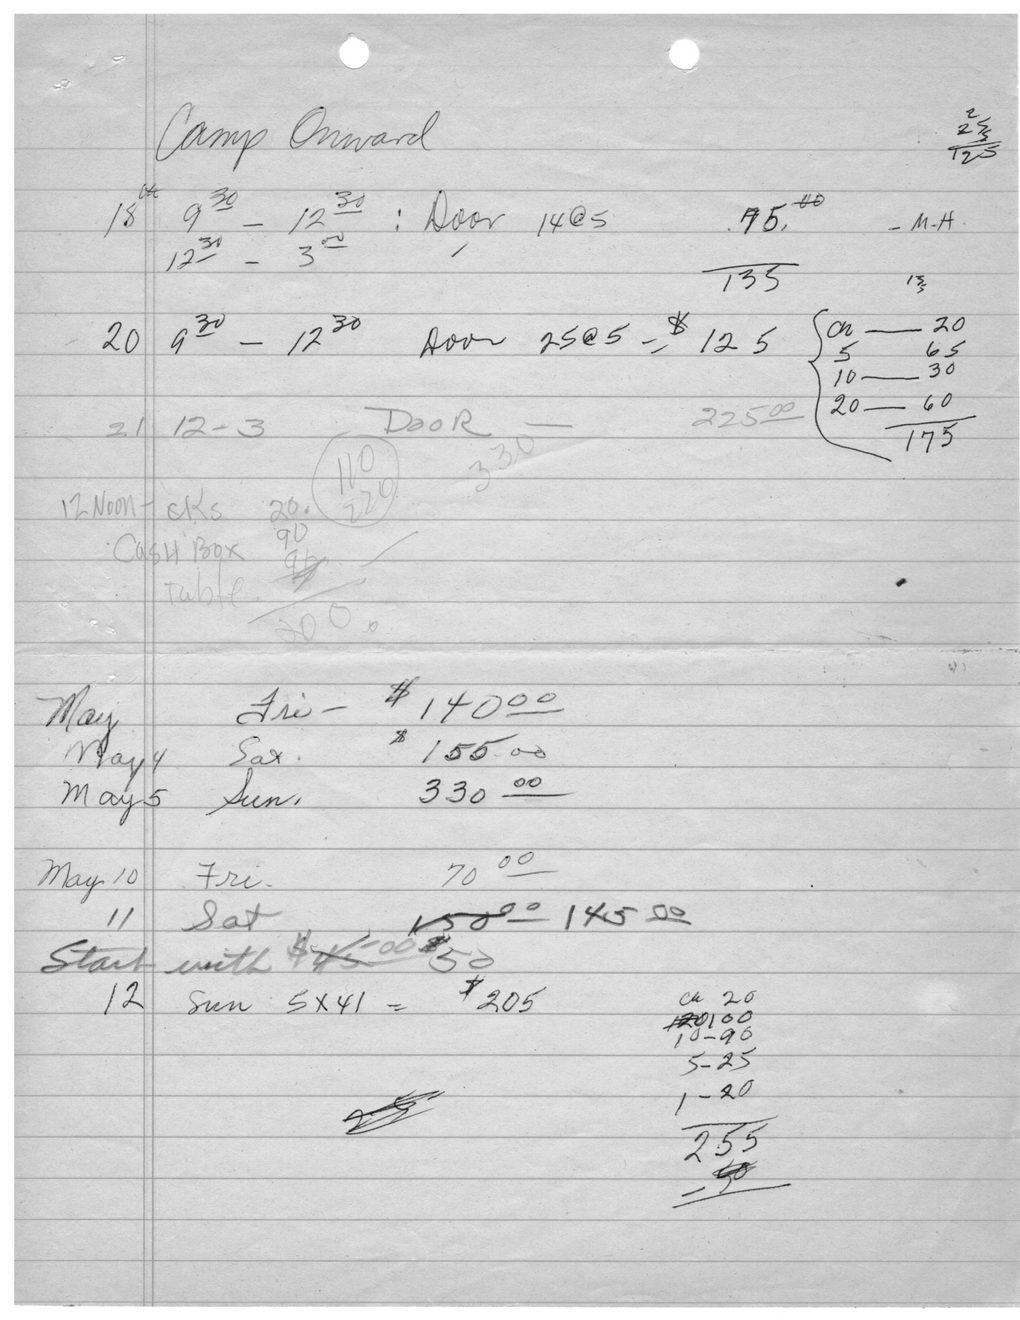 Camp Onward
2
25
5
125
18th 9 30 - 12 30 : Door 14@5 75.00 - M-H.
12 30 - 3 00 "
135
20 9 30 - 12 30 Door 25@5 = $ 125
ck — 20
5 65
10 — 30
20 — 60
175
21 12-3 DooR — 225 00
110
220
330
12 Noon - cKs 20.
Cash Box 90
Table
200.
May Fri - $140 00
May 4 Sat. $155.00
May 5 Sun. 330 00
May 10 Fri. 70 00
11 Sat 150 00 145 00
Start with $45.00 $50
12 Sun 5X41 = $205
ck 20
120 100
10-90
5-25
1-20
255
- 50
25